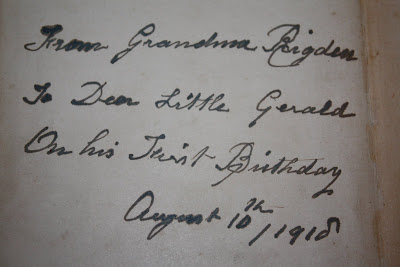 From Grandma Rigden
To Dear Little Gerald
On his First Birthday
August 10th/1918